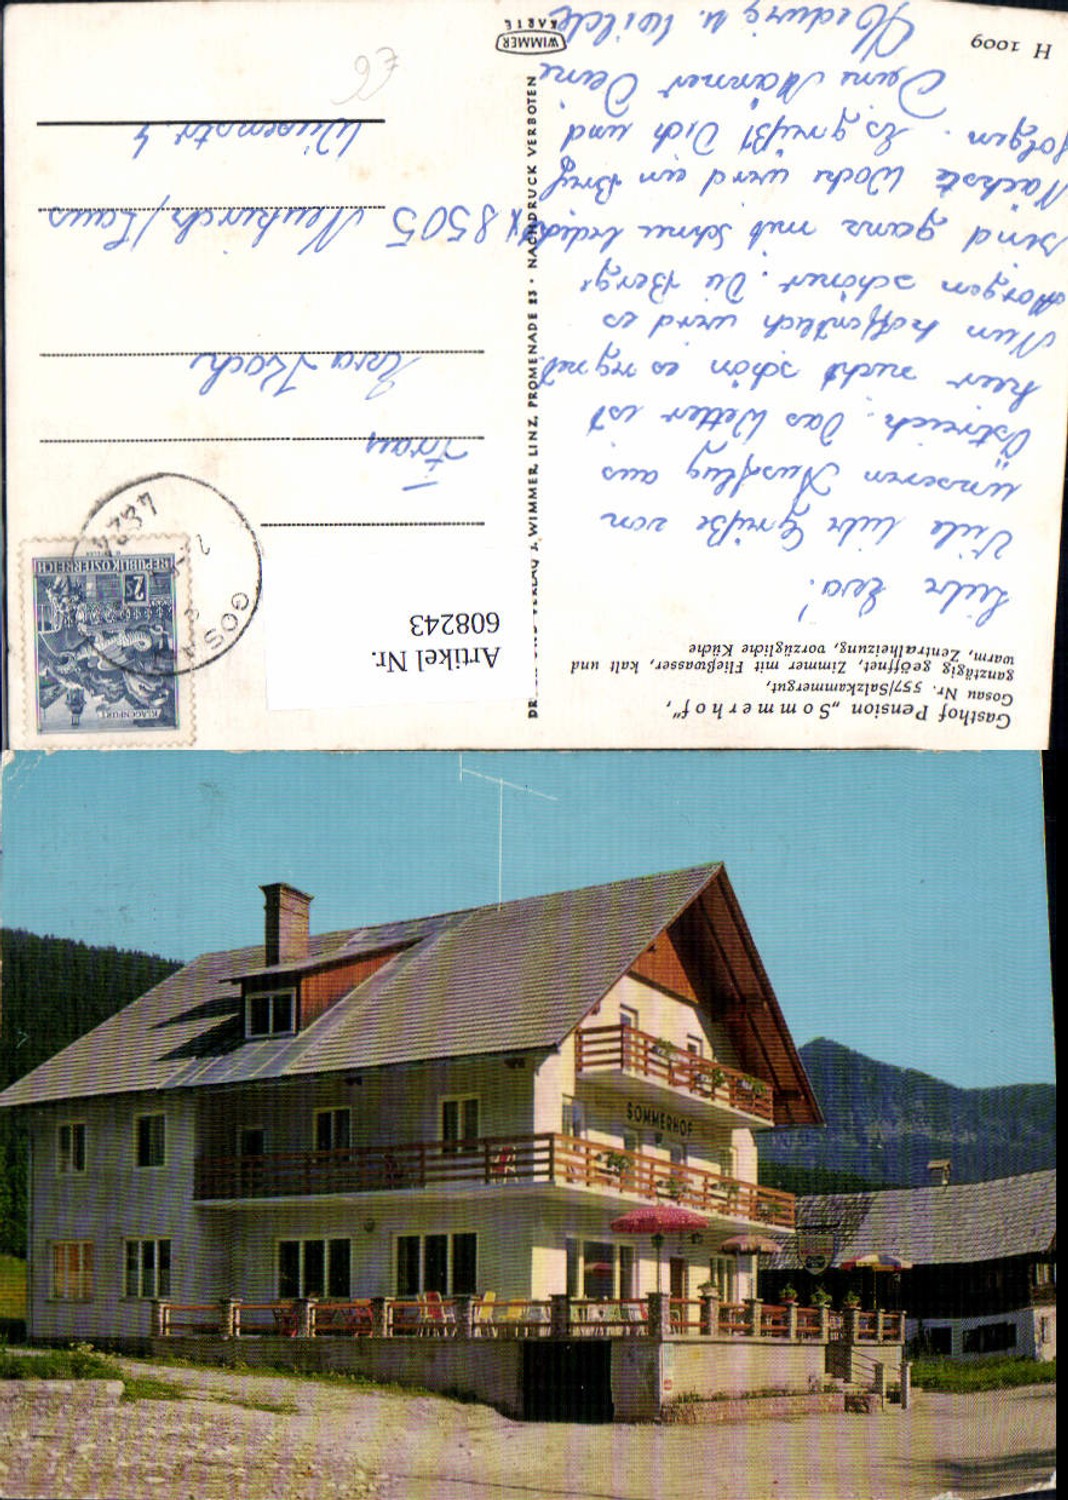 H 1009
Gasthof Pension „Sommerhof“,
Gosau Nr. 557/Salzkammergut,
ganztägig geöffnet, Zimmer mit Fließwasser, kalt und
warm, Zentralheizung, vorzügliche Küche
Liebe Eva!
Viele liebe Grüße von
unseren Ausflug aus
Östreich. Das Wetter ist
hier nicht schön es regnet
Nun hoffentlich wird es
Morgen schöner. Die Berge
sind ganz mit Schnee bedeckt
Nächste Woche wird ein Brief
folgen. Es grüßt Dich und
Deine Männer Deine
Hedwig u.
WIMMER
KARTE
VERLAG J. WIMMER, LINZ, PROMENADE 23 · NACHDRUCK VERBOTEN
Artikel Nr.
608243
KLAGENFURT
2S
REPUBLIK ÖSTERREICH
GOSAU
4824
Frau
Eva Koch
8505 Neukirch/Laus
Wiesenstr. 4
SOMMERHOF